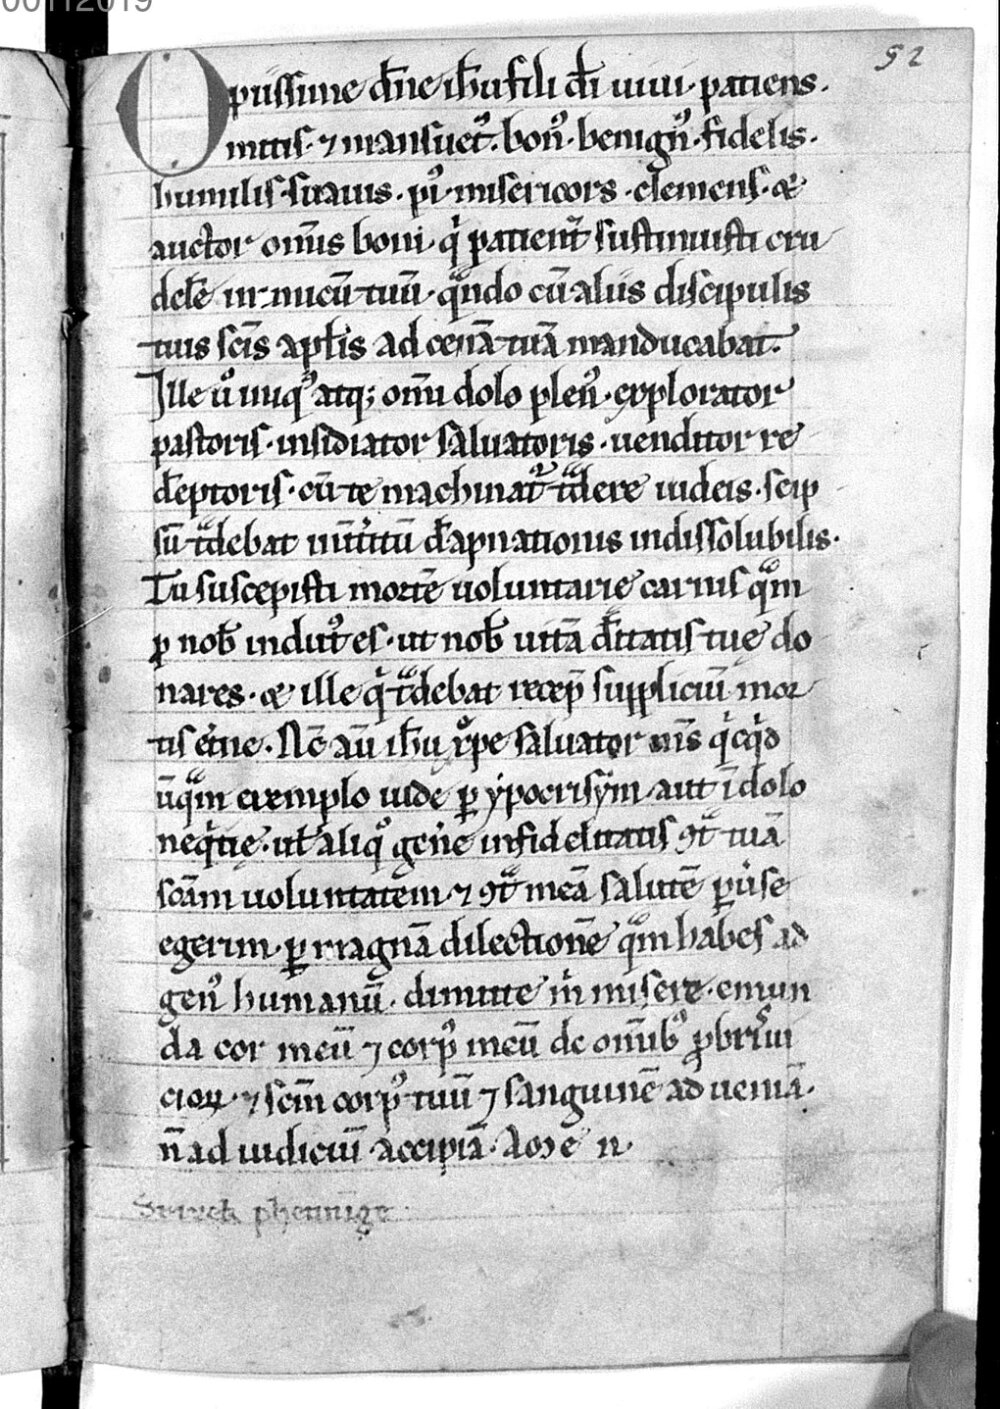 00112019
52
O piissime dn̄e ih̄u fili dī uiui · patiens ·
mitis · ⁊ mansuet᷒ · bon᷒ · benign᷒ · fidelis ·
humilis · suauis · pi᷒ · misericors · clemens · &
auctor om̄is boni · qͥ patient̄ sustinuisti cru
delē inimicū tuū · qͣndo cū aliis discipulis
tuis sc̄is apl̄is ad cenā tuā manducabat ·
Ille u᷒ iniq᷒ atq; om̄i dolo plen᷒ · explorator
pastoris · insidiator saluatoris · uenditor re
dēptoris · cū te machinat᷑ tͣdere iudeis · seip
sū tͣdebat int̄itū dāpnationis indissolubilis ·
Tu suscepisti mortē uoluntarie carnis qͣm
ꝓ nob̄ indut᷒ es · ut nob̄ uitā dītatis tuę do
nares · & ille qͥ tͣdebat recep̄ suppliciū mor
tis et̄ne · Nc̄ aū ih̄u xp̄e saluator nr̄is qͥcqͥd
ūqͣm exemplo iude ꝑ ypocrisym aut ī dolo
neqͥtię · ut̄ aliq᷒ gen̄e infidelitatis ↄtͣ tuā
sc̄am uoluntatem · ⁊ ↄtͣ meā salutē ꝑu̔se
egerim · ꝑ magnā dilectionē qͣm habes ad
gen᷒ humanū · dimitte m̄ misere · emun
da cor meū ⁊ corp᷒ meū de om̄ib᷒ ꝓbris ui
cioꝝ · ⁊ sc̄m corp᷒ tuū ⁊ sanguinē ad ueniā ·
n̄ ad iudiciū accipiā · Amen ·
phennige